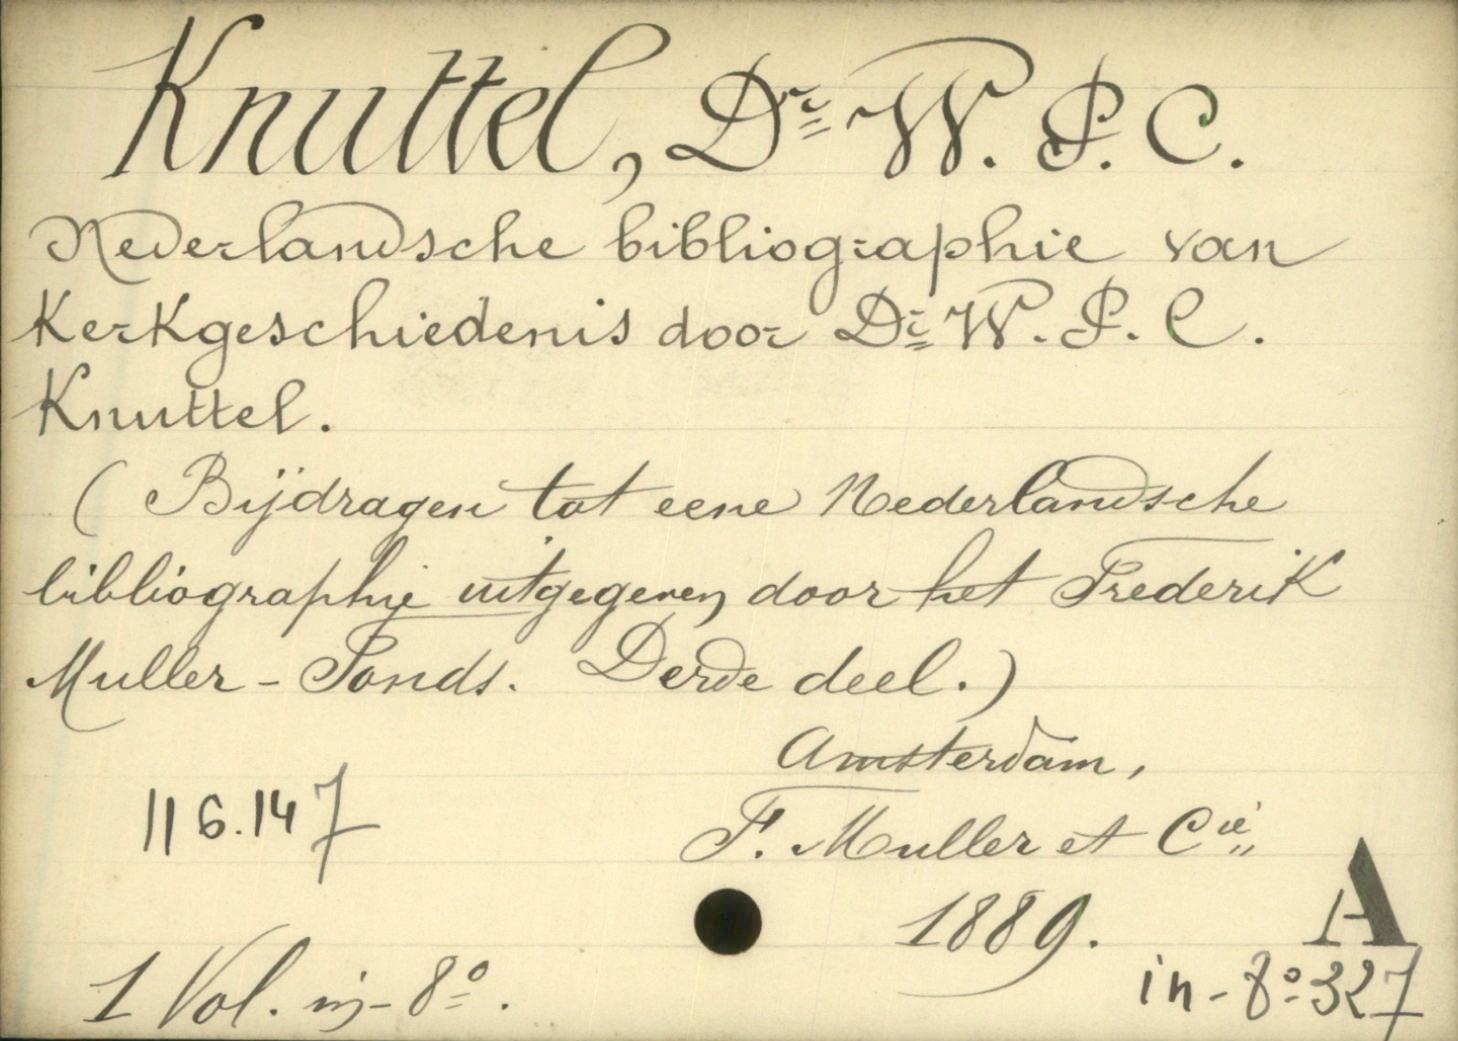 Knuttel, Dr W. P. C.
Nederlandsche bibliographie van
Kerkgeschiedenis door Dr W. P. C.
Knuttel.
(Bijdragen tot eene Nederlandsche
bibliographie uitgegeven door het Frederik
Muller-Fonds. Derde deel.)
Amsterdam,
116.147
F. Muller et Cie
1889.
A
1 Vol. in-8º.
in-8º 327